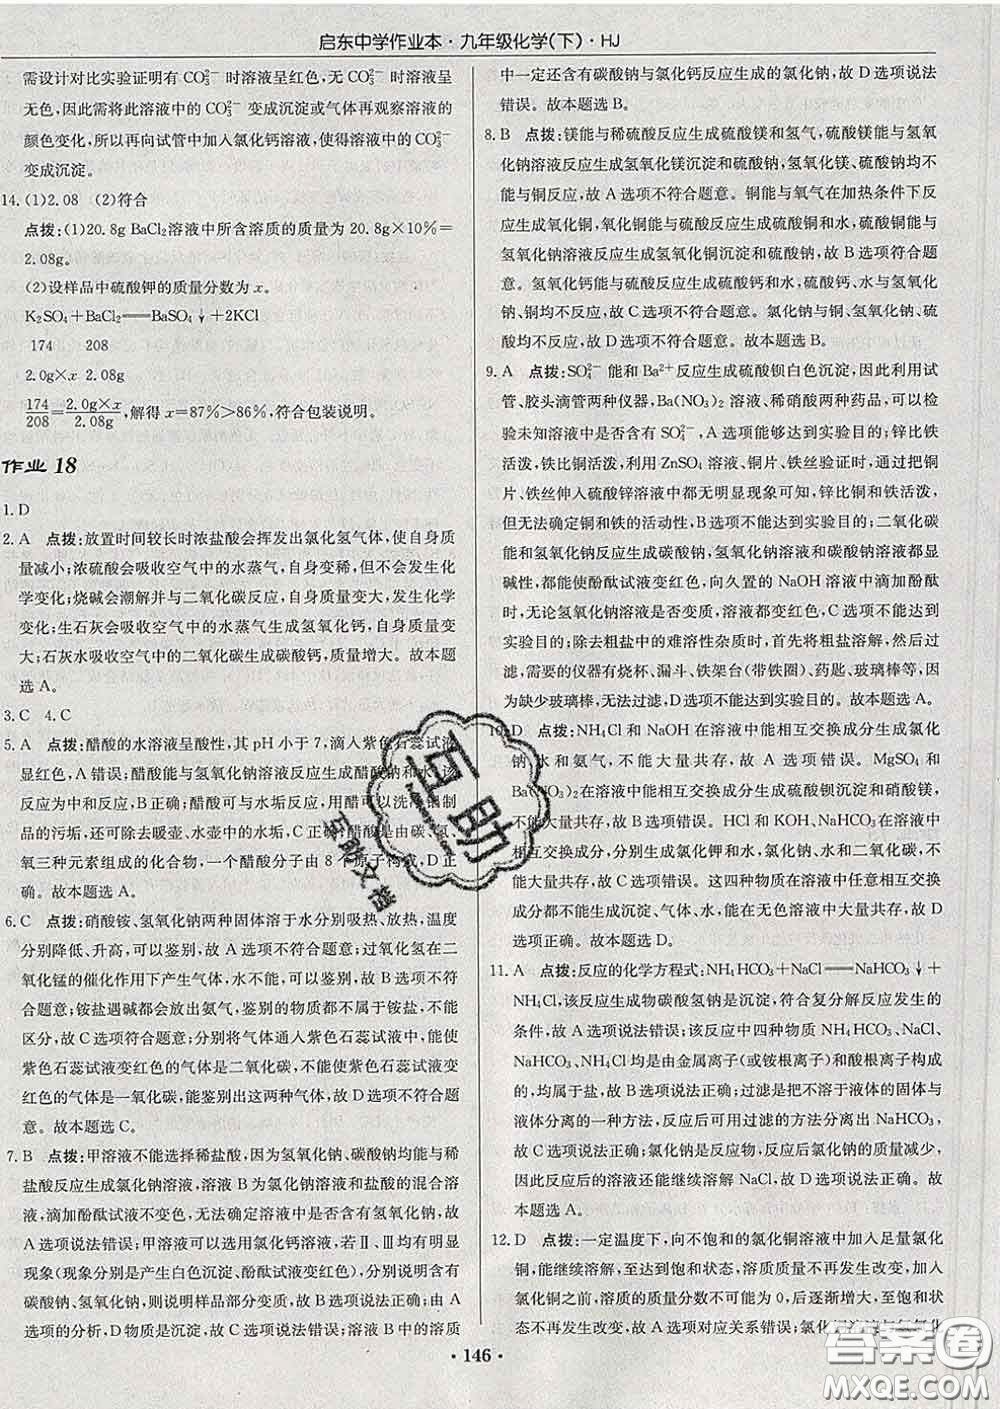 启东中学作业本·九年级化学(下)·HJ
需设计对比实验证明有 CO₃²⁻ 时溶液呈红色,无 CO₃²⁻ 时溶液呈
无色,因此需将此溶液中的 CO₃²⁻ 变成沉淀或气体再观察溶液的
颜色变化,所以再向试管中加入氯化钙溶液,使得溶液中的 CO₃²⁻
变成沉淀。
14. (1)2.08 (2)符合
点拨:(1)20.8g BaCl₂溶液中所含溶质的质量为 20.8g×10%=
2.08g。
(2)设样品中硫酸钾的质量分数为 x。
K₂SO₄+BaCl₂══BaSO₄↓+2KCl
174 208
2.0g×x 2.08g
174/208=2.0g×x/2.08g,解得 x=87%>86%,符合包装说明。
作业 18
1. D
2. A 点拨:放置时间较长时浓盐酸会挥发出氯化氢气体,使自身质
量减小;浓硫酸会吸收空气中的水蒸气,自身变稀,但不会发生化
学变化;烧碱会潮解并与二氧化碳反应,发生化学
变化;生石灰会吸收空气中的水蒸气生成氢氧化钙,自身质量
变大;石灰水吸收空气中的二氧化碳生成碳酸钙,质量增大。故本题
选 A。
3. C 4. C
5. A 点拨:醋酸的水溶液呈酸性,其 pH 小于 7,滴入紫色石蕊试液
显红色,A 错误;醋酸能与氢氧化钠溶液反应生成醋酸钠和水,该
反应为中和反应,B 正确;醋酸可与水垢反应,用醋可以洗涤铜制
品的污垢,还可除去暖壶、水壶中的水垢,C 正确;醋酸是由碳、氢、
氧三种元素组成的化合物,一个醋酸分子由 8 个原子构成,D 正
确。故本题选 A。
6. C 点拨:硝酸铵、氢氧化钠两种固体溶于水分别吸热、放热,温度
分别降低、升高,可以鉴别,故 A 选项不符合题意;过氧化氢在二
氧化锰的催化作用下产生气体,水不能,可以鉴别,故 B 选项不符
合题意;铵盐遇碱都会放出氨气,鉴别的物质都属于铵盐,不能
区分,故 C 选项符合题意;分别将气体通入紫色石蕊试液中,能使
紫色石蕊试液变红色的气体是二氧化碳,不能使紫色石蕊试液变
红色的气体是一氧化碳,能鉴别出这两种气体,D 选项不符合题
意。故本题选 C。
7. B 点拨:甲溶液不能选择稀盐酸,因为氢氧化钠、碳酸钠均能与稀
盐酸反应生成氯化钠溶液,溶液 B 为氯化钠溶液和盐酸的混合溶
液,滴加酚酞试液不变色,无法确定溶液中是否含有氢氧化钠,故
A 选项说法错误;甲溶液可以选用氯化钙溶液,若Ⅱ、Ⅲ均有明显
现象(现象分别是产生白色沉淀、酚酞试液变红色),说明含有
碳酸钠、氢氧化钠,则说明样品部分变质,故 B 选项说法正确;由 A
选项的分析,D 物质是沉淀,故 C 选项说法错误;溶液 B 中的溶质
中一定还含有碳酸钠与氯化钙反应生成的氯化钠,故 D 选项说法
错误。故本题选 B。
8. B 点拨:镁能与稀硫酸反应生成硫酸镁和氢气,硫酸镁能与氢氧
化钠溶液反应生成氢氧化镁沉淀和硫酸钠,氢氧化镁、硫酸钠均不
能与铜反应,故 A 选项不符合题意。铜能与氧气在加热条件下反
应生成氧化铜,氧化铜能与硫酸反应生成硫酸铜和水,硫酸铜能与
氢氧化钠溶液反应生成氢氧化铜沉淀和硫酸钠,故 B 选项符合题
意。氢氧化钙能与硫酸反应生成硫酸钙和水,硫酸钙不能与铁反
应,故 C 选项不符合题意。氯化钠与铜、氢氧化钠、
硫酸均不反应,故 D 选项不符合题意。故本题选 B。
9. A 点拨:SO₄²⁻ 能和 Ba²⁺ 反应生成硫酸钡白色沉淀,因此利用试
管、胶头滴管两种仪器,Ba(NO₃)₂ 溶液、稀硝酸两种药品,可以检
验未知溶液中是否含有 SO₄²⁻,A 选项能够达到实验目的;锌比铁
活泼,铁比铜活泼,利用 ZnSO₄ 溶液、铜片、铁丝进行实验,把铜
片、铁丝伸入硫酸锌溶液中都无明显现象可知,锌比铜和铁活泼,
但无法确定铜和铁的活动性,B 选项不能达到实验目的;二氧化碳
能和氢氧化钠反应生成碳酸钠,氢氧化钠溶液和碳酸钠溶液都显
碱性,都能使酚酞试液变红色,向久置的 NaOH 溶液中滴加酚酞
时,无论氢氧化钠溶液是否变质,溶液都变红色,C 选项不能达到
实验目的;除去粗盐中的难溶性杂质时,首先将粗盐溶解,然后过
滤,需要的仪器有烧杯、漏斗、铁架台(带铁圈)、药匙、玻璃棒等,因
为缺少玻璃棒,无法过滤,D 选项不能达到实验目的。故本题选 A。
10. D 点拨:NH₄Cl 和 NaOH 在溶液中能相互交换成分生成氯化
钠、水和氨气,不能大量共存,故 A 选项错误。MgSO₄ 和
Ba(NO₃)₂ 在溶液中能相互交换成分生成硫酸钡沉淀和硝酸镁,
不能大量共存,故 B 选项错误。HCl 和 KOH、Na₂CO₃ 在溶液中
能相互交换成分,分别生成氯化钾和水,氯化钠、水和二氧化碳,不
能大量共存,故 C 选项错误。这四种物质在溶液中任意相互交换
成分不能生成沉淀、气体、水,能在无色溶液中大量共存,故 D
选项正确。故本题选 D。
11. A 点拨:反应的化学方程式:NH₄HCO₃+NaCl══NaHCO₃↓+
NH₄Cl,该反应生成物碳酸氢钠是沉淀,符合复分解反应发生的
条件,故 A 选项说法错误;该反应中四种物质 NH₄HCO₃、NaCl、
NaHCO₃、NH₄Cl 均是由金属离子(或铵根离子)和酸根离子构成
的,均属于盐,故 B 选项说法正确;过滤是把不溶于液体的固体与
液体分离的一种方法,反应后可用过滤的方法分离出 NaHCO₃,
故 C 选项说法正确;氯化钠是反应物,反应后氯化钠的质量减少,
因此反应后的溶液还能继续溶解 NaCl,故 D 选项说法正确。故
本题选 A。
12. D 点拨:一定温度下,向不饱和的氯化铜溶液中加入足量氯化
铜,能继续溶解,至达到饱和状态,溶质质量分数不再发生改变,加入
氯化铜之前,溶质的质量分数不可能为 0,后逐渐增大,至饱和状态
后不再发生改变,故 A 选项对应关系错误;
· 146 ·
互助
互助文档
答案圈
MXQE.COM